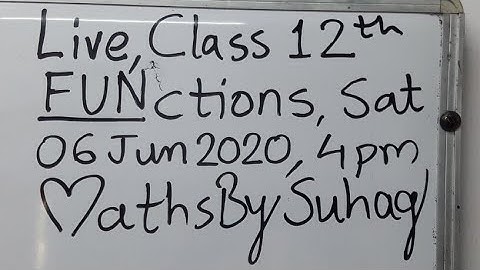 Live, Class 12th
FUNctions, Sat
06 Jun 2020, 4pm
♡MathsBySuhag